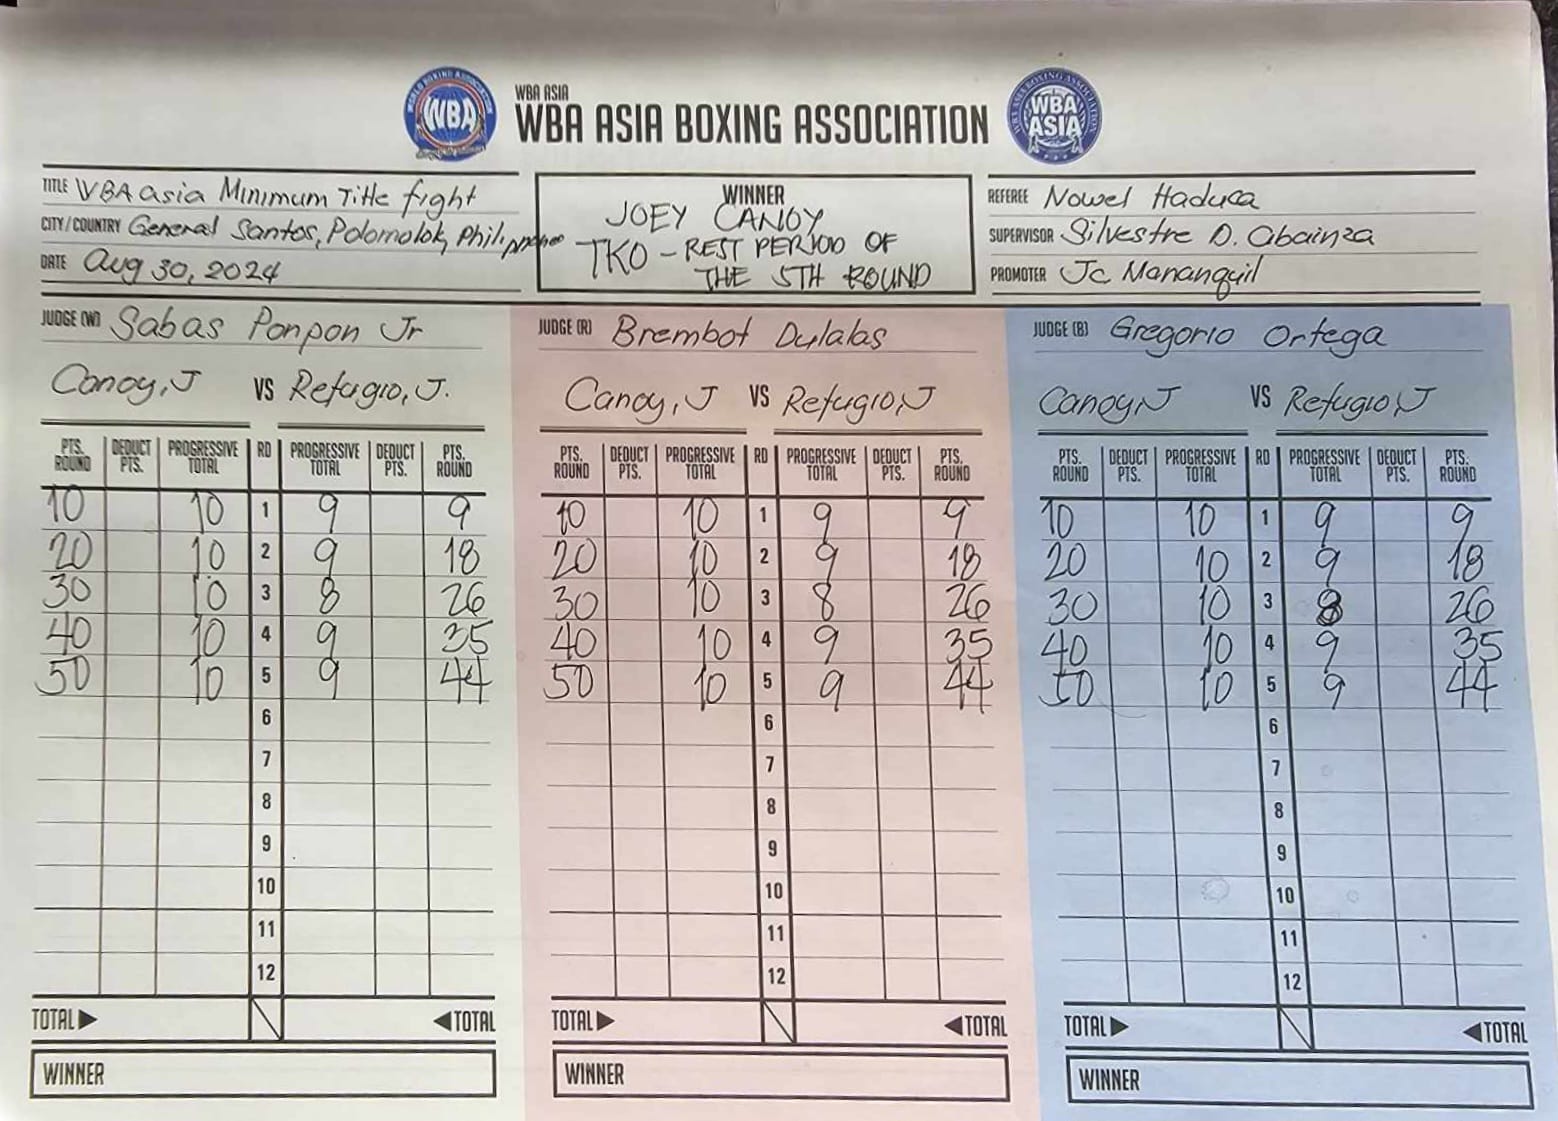 WBA
WBA ASIA
WBA ASIA BOXING ASSOCIATION
WBA ASIA
TITLE WBA asia Minimum Title fight
CITY/COUNTRY General Santos, Polomolok, Philippines
DATE Aug 30, 2024
WINNER
JOEY CANOY
TKO - REST PERIOD OF
THE 5TH ROUND
REFEREE Nowel Haduca
SUPERVISOR Silvestre D. Abainza
PROMOTER Jc Mananquil
JUDGE (W) Sabas Ponpon Jr
Canoy, J VS Refugio, J.
PTS. ROUND DEDUCT PTS. PROGRESSIVE TOTAL RD PROGRESSIVE TOTAL DEDUCT PTS. PTS. ROUND
10 10 1 9 9
20 10 2 9 18
30 10 3 8 26
40 10 4 9 35
50 10 5 9 44
6
7
8
9
10
11
12
TOTAL▶ ◀TOTAL
WINNER
JUDGE (R) Brembot Dulalas
Canoy, J VS Refugio, J
PTS. ROUND DEDUCT PTS. PROGRESSIVE TOTAL RD PROGRESSIVE TOTAL DEDUCT PTS. PTS. ROUND
10 10 1 9 9
20 10 2 9 18
30 10 3 8 26
40 10 4 9 35
50 10 5 9 44
6
7
8
9
10
11
12
TOTAL▶ ◀TOTAL
WINNER
JUDGE (B) Gregorio Ortega
Canoy, J VS Refugio, J
PTS. ROUND DEDUCT PTS. PROGRESSIVE TOTAL RD PROGRESSIVE TOTAL DEDUCT PTS. PTS. ROUND
10 10 1 9 9
20 10 2 9 18
30 10 3 8 26
40 10 4 9 35
50 10 5 9 44
6
7
8
9
10
11
12
TOTAL▶ ◀TOTAL
WINNER